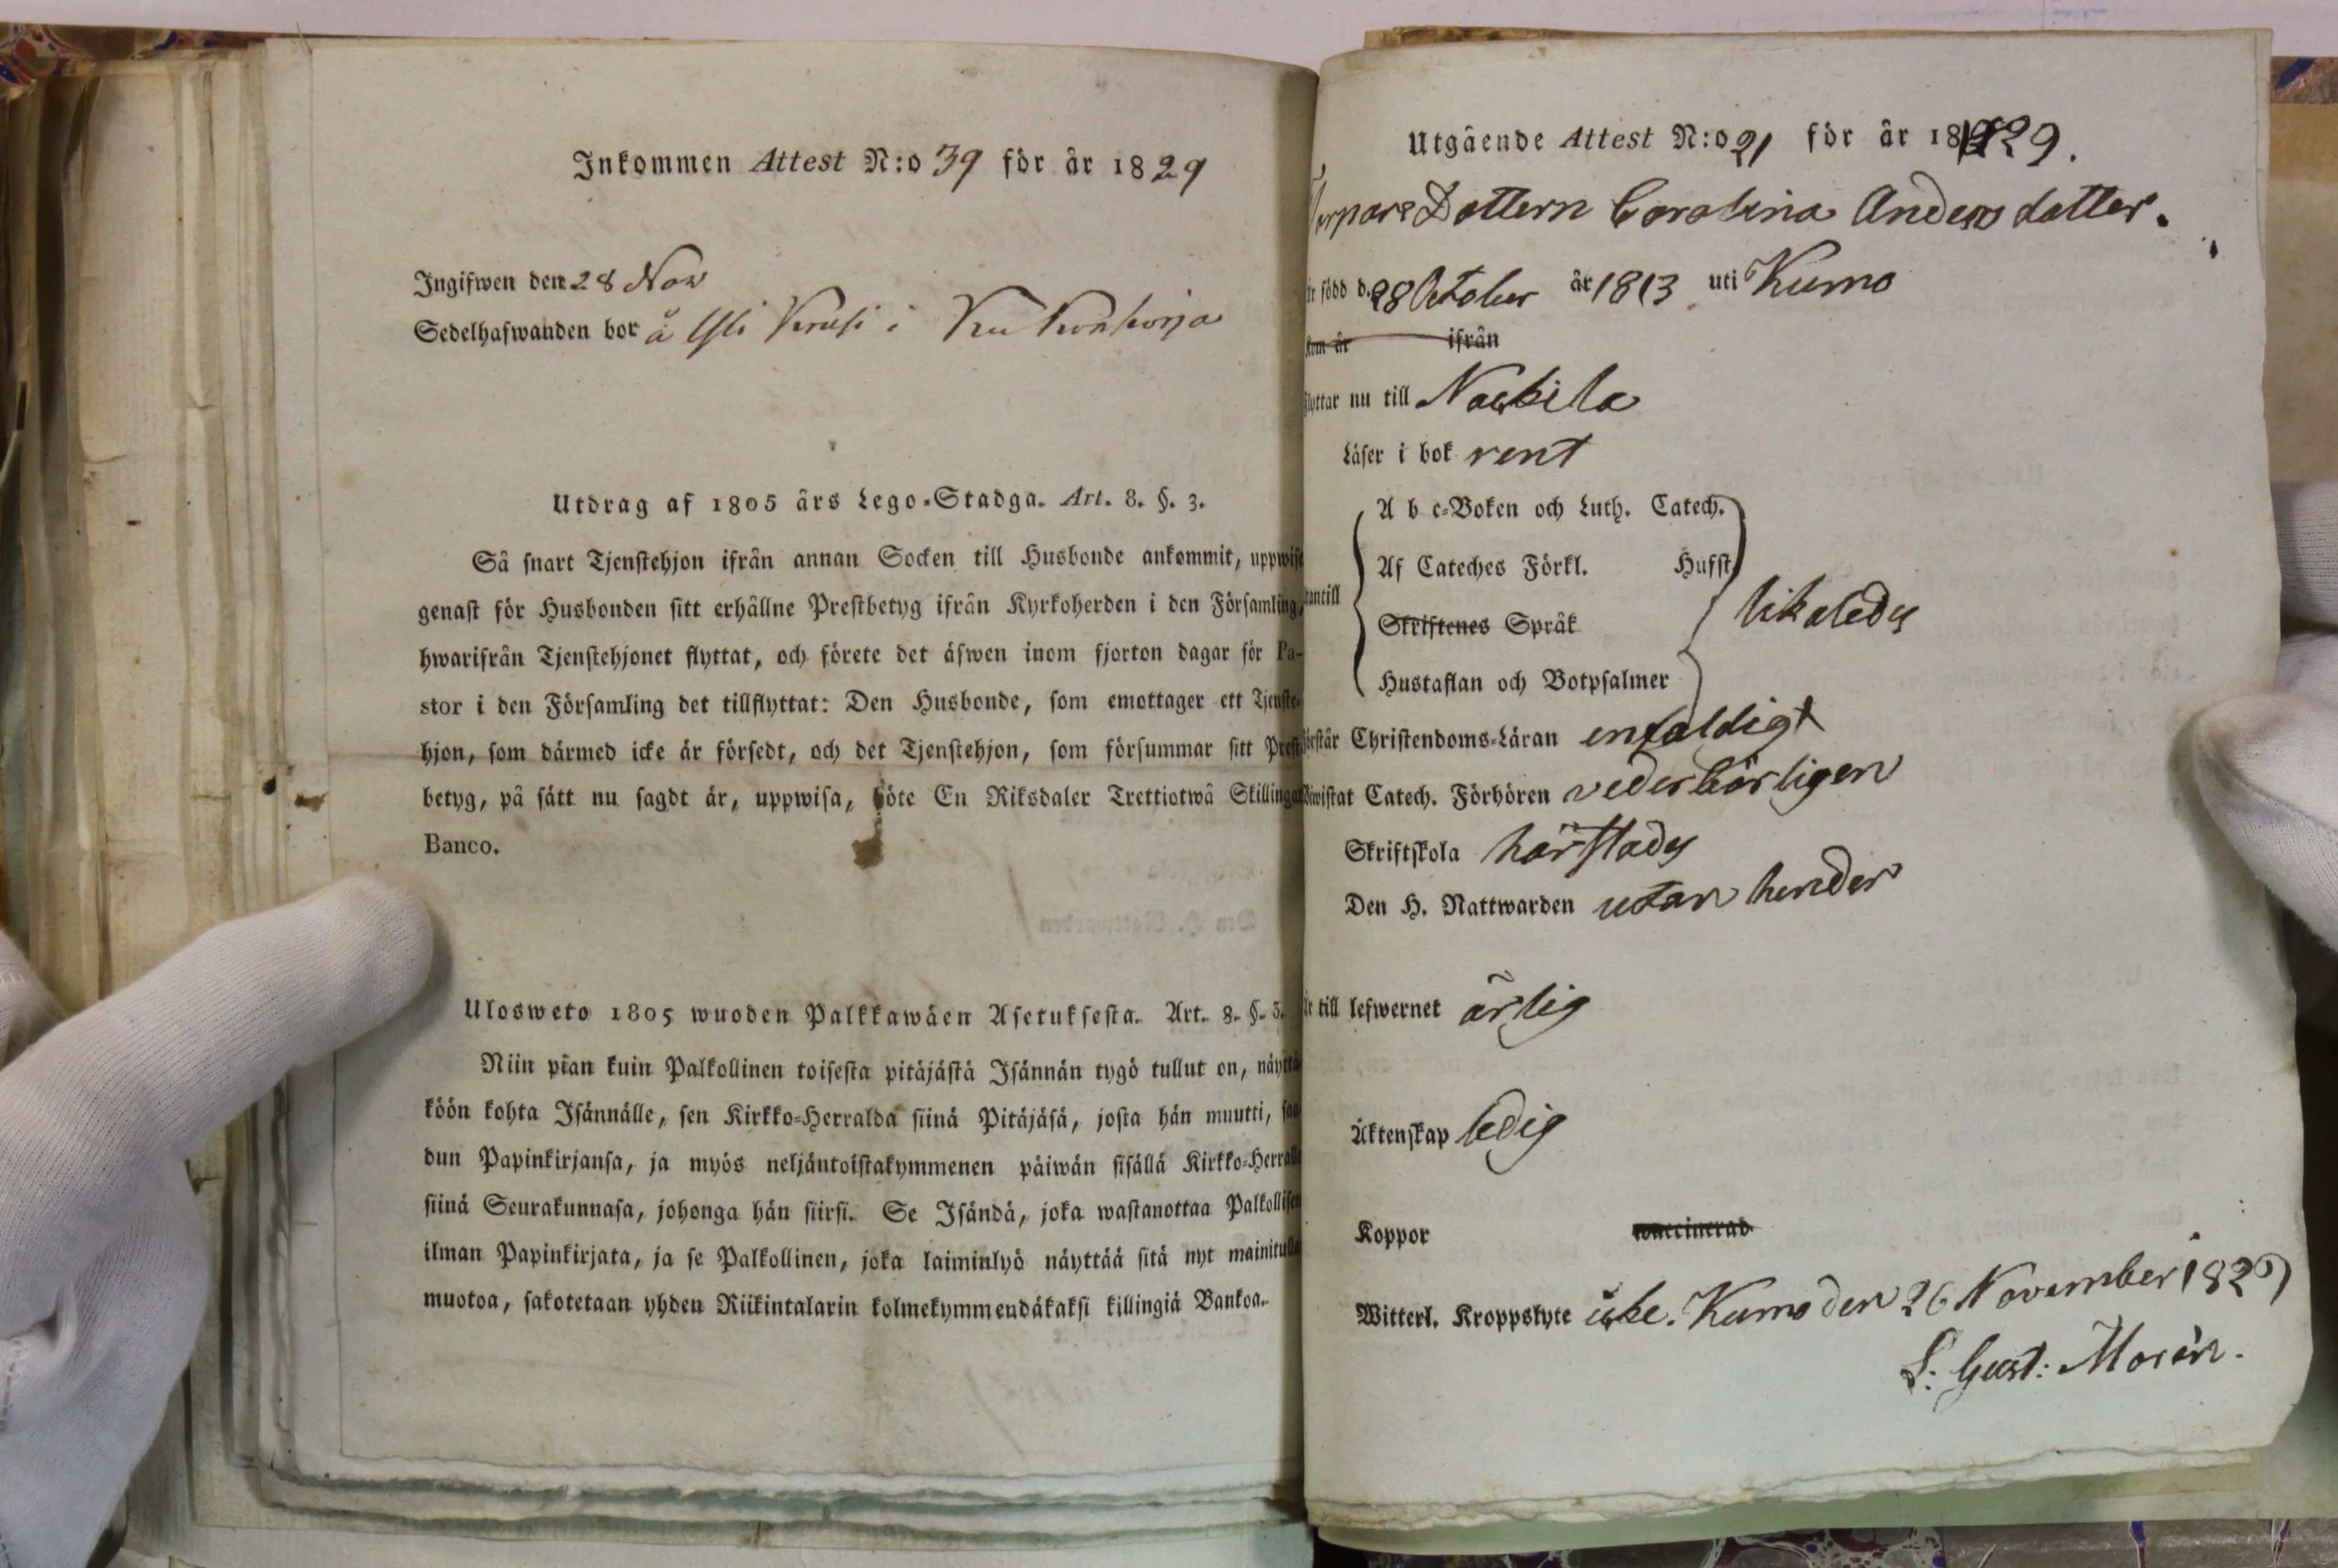 Inkommen Attest N:o 39 för år 1829
Ingifwen den 28 Nov
Sedelhafwanden bor å Yli Krusi i
Utdrag af 1805 års Lego-Stadga. Art. 8. §. 3.
Så snart Tjenstehjon ifrån annan Socken till Husbonde ankommit, uppwise
genast för Husbonden sitt erhållne Prestbetyg ifrån Kyrkoherden i den Församling,
hwarifrån Tjenstehjonet flyttat, och förete det äfwen inom fjorton dagar för Pa-
stor i den Församling det tillflyttat: Den Husbonde, som emottager ett Tjenste-
hjon, som därmed icke är försedt, och det Tjenstehjon, som försummar sitt Prest-
betyg, på sätt nu sagdt är, uppwisa, böte En Riksdaler Trettiotwå Skillingar
Banco.
Ulosweto 1805 wuoden Palkkawäen Asetuksesta. Art. 8. §. 3.
Niin pian kuin Palkollinen toisesta pitäjästä Isännän tygö tullut on, näyttä
köön kohta Isännälle, sen Kirkko-Herralda siinä Pitäjäsä, josta hän muutti, saa
dun Papinkirjansa, ja myös neljäntoistakymmenen päiwän sisällä Kirkko-Herralle
siinä Seurakunnasa, johonga hän siirsi. Se Isändä, joka wastanottaa Palkollisen
ilman Papinkirjata, ja se Palkollinen, joka laiminlyö näyttää sitä nyt mainitulla
muotoa, sakotetaan yhden Riikintalarin kolmekymmendäkaksi killingiä Bankoa.
Utgående Attest N:o 21 för år 1829.
Dottern Carolina Andersdotter.
är född d. 28 October år 1813 uti Kumo
kom år ifrån
flyttar nu till Nackila
Läser i bok rent
A b c-Boken och Luth. Catech.
Af Cateches Förkl. Hufst.
utantill
likaledes
Skriftenes Språk
Hustaflan och Botpsalmer
förstår Christendoms-Läran enfaldigt
Biwistat Catech. Förhören vederbörligen
Skriftskola härstädes
Den H. Nattwarden utan hinder
Är till lefwernet ärlig
Äktenskap ledig
Koppor vaccinerad
Witterl. Kroppslyte icke. Kumo den 26 November 1829
L: Gust: Morén.